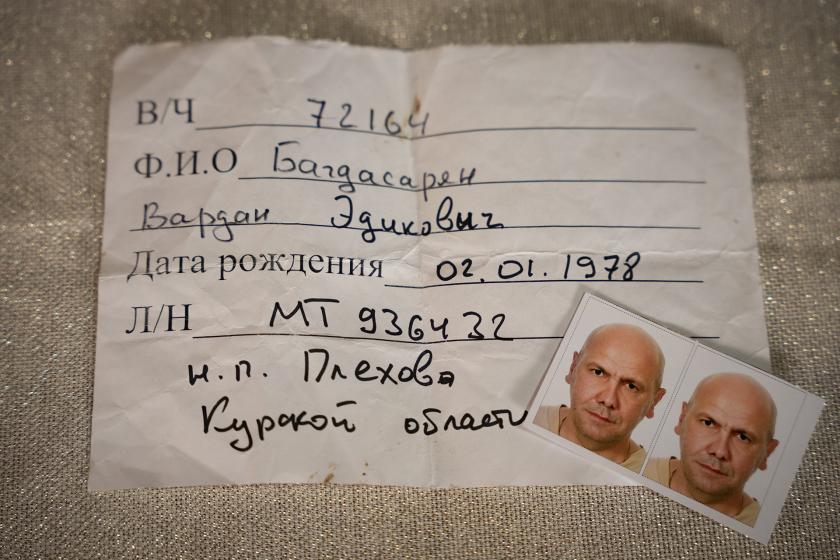 В/Ч 72164
Ф.И.О Багдасарян
Вардан Эдикович
Дата рождения 02.01.1978
Л/Н МТ 936432
н.п. Плехово
Курской области